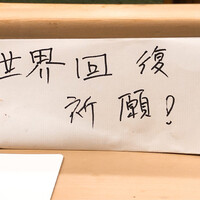 世界回復
祈願!